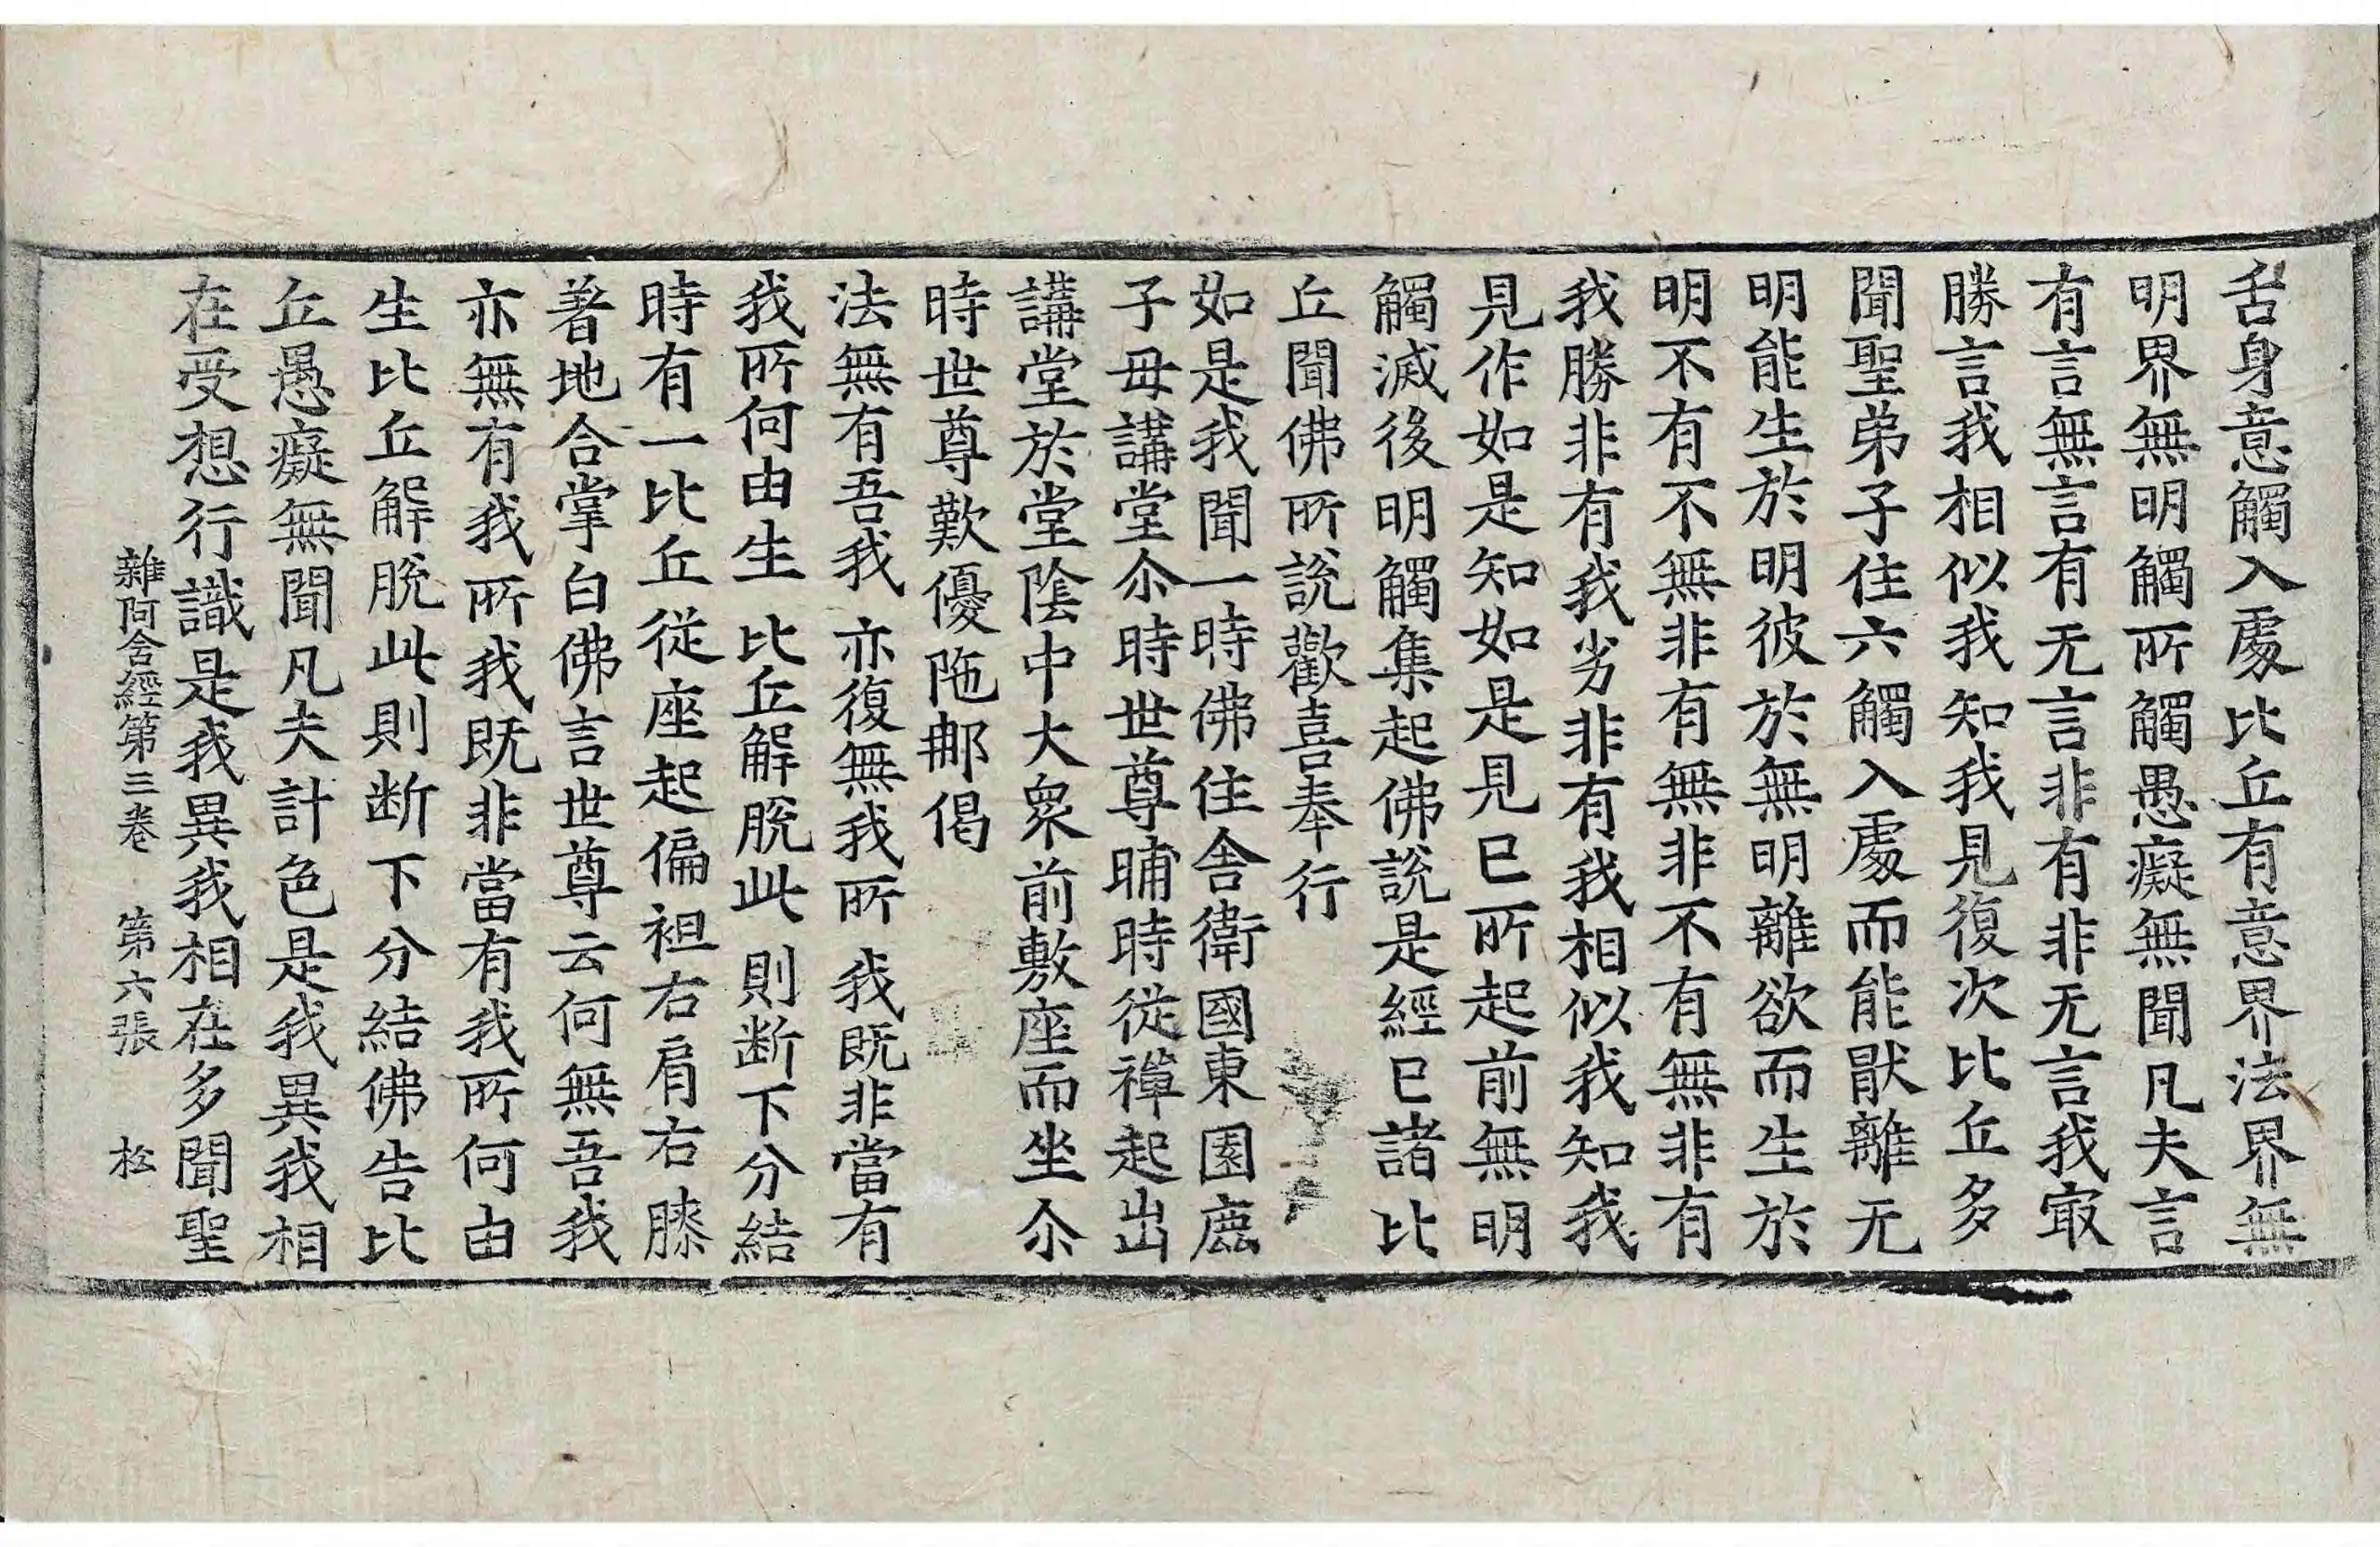 舌身意觸入處比丘有意界法界無
明界無明觸所觸愚癡無聞凡夫言
有言無言有无言非有非无言我㝡
勝言我相似我知我見復次比丘多
聞聖弟子住六觸入處而能猒離无
明能生於明彼於無明離欲而生於
明不有不無非有無非不有無非有
我勝非有我劣非有我相似我知我
見作如是知如是見已所起前無明
觸滅後明觸集起佛說是經已諸比
丘聞佛所說歡喜奉行
如是我聞一時佛住舍衛國東園鹿
子母講堂尒時世尊晡時從禪起出
講堂於堂陰中大衆前敷座而坐尒
時世尊歎優陁那偈
法無有吾我 亦復無我所 我既非當有
我所何由生 比丘解脫此 則断下分結
時有一比丘從座起偏袒右肩右膝
著地合掌白佛言世尊云何無吾我
亦無有我所我既非當有我所何由
生比丘解脫此則断下分結佛告比
丘愚癡無聞凡夫計色是我異我相
在受想行識是我異我相在多聞聖
雜阿含經第三卷 第六張 松